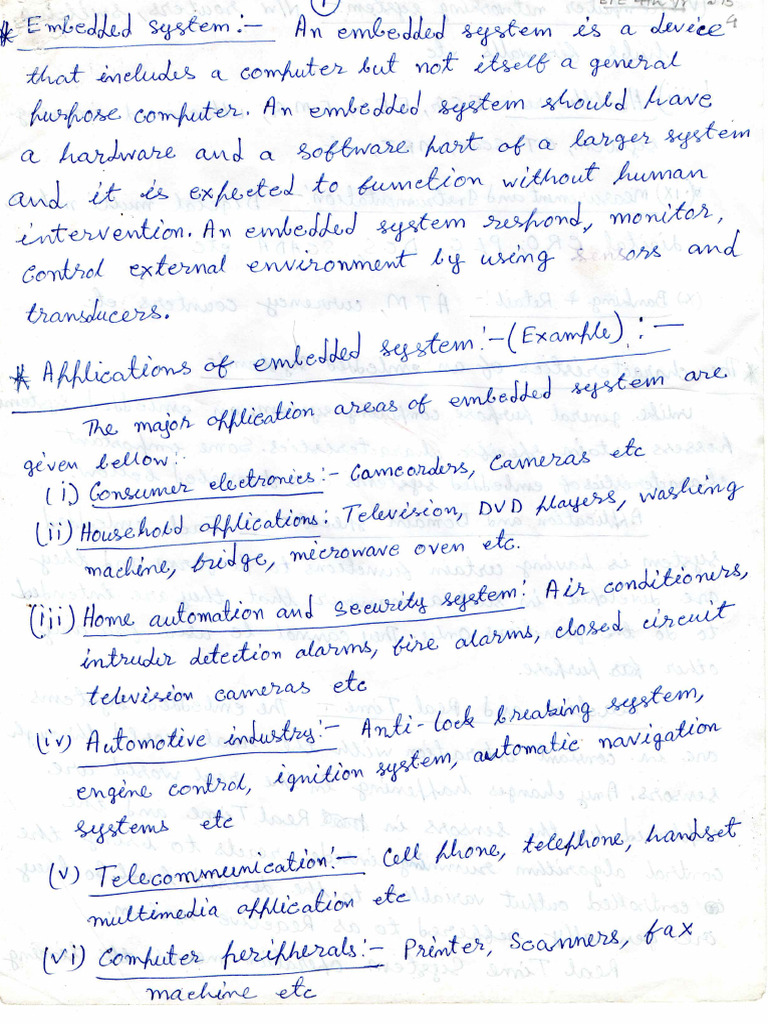 1
* Embedded system:- An embedded system is a device
that includes a computer but not itself a general
purpose computer. An embedded, system should have
a hardware and a software part of a larger system
and it is expected to function without human
intervention. An embedded system respond, monitor,
control external environment by using sensors and
transducers.
* Applications of embedded system:-(Example):-
The major application areas of embedded system are
given bellow:
(i) Consumer electronics:- Camcorders, Cameras etc
(ii) Household applications: Television, DVD players, washing
machine, bridge, microwave oven etc.
(iii) Home automation and security system: Air conditioners,
intruder detection alarms, fire alarms, closed circuit
television cameras etc
(iv) Automotive industry:- Anti-lock breaking system,
engine control, ignition system, automatic navigation
systems etc
(v) Telecommunication:- Cell phone, telephone, handset
multimedia application etc
(vi) Computer peripherals:- Printer, Scanners, fax
machine etc